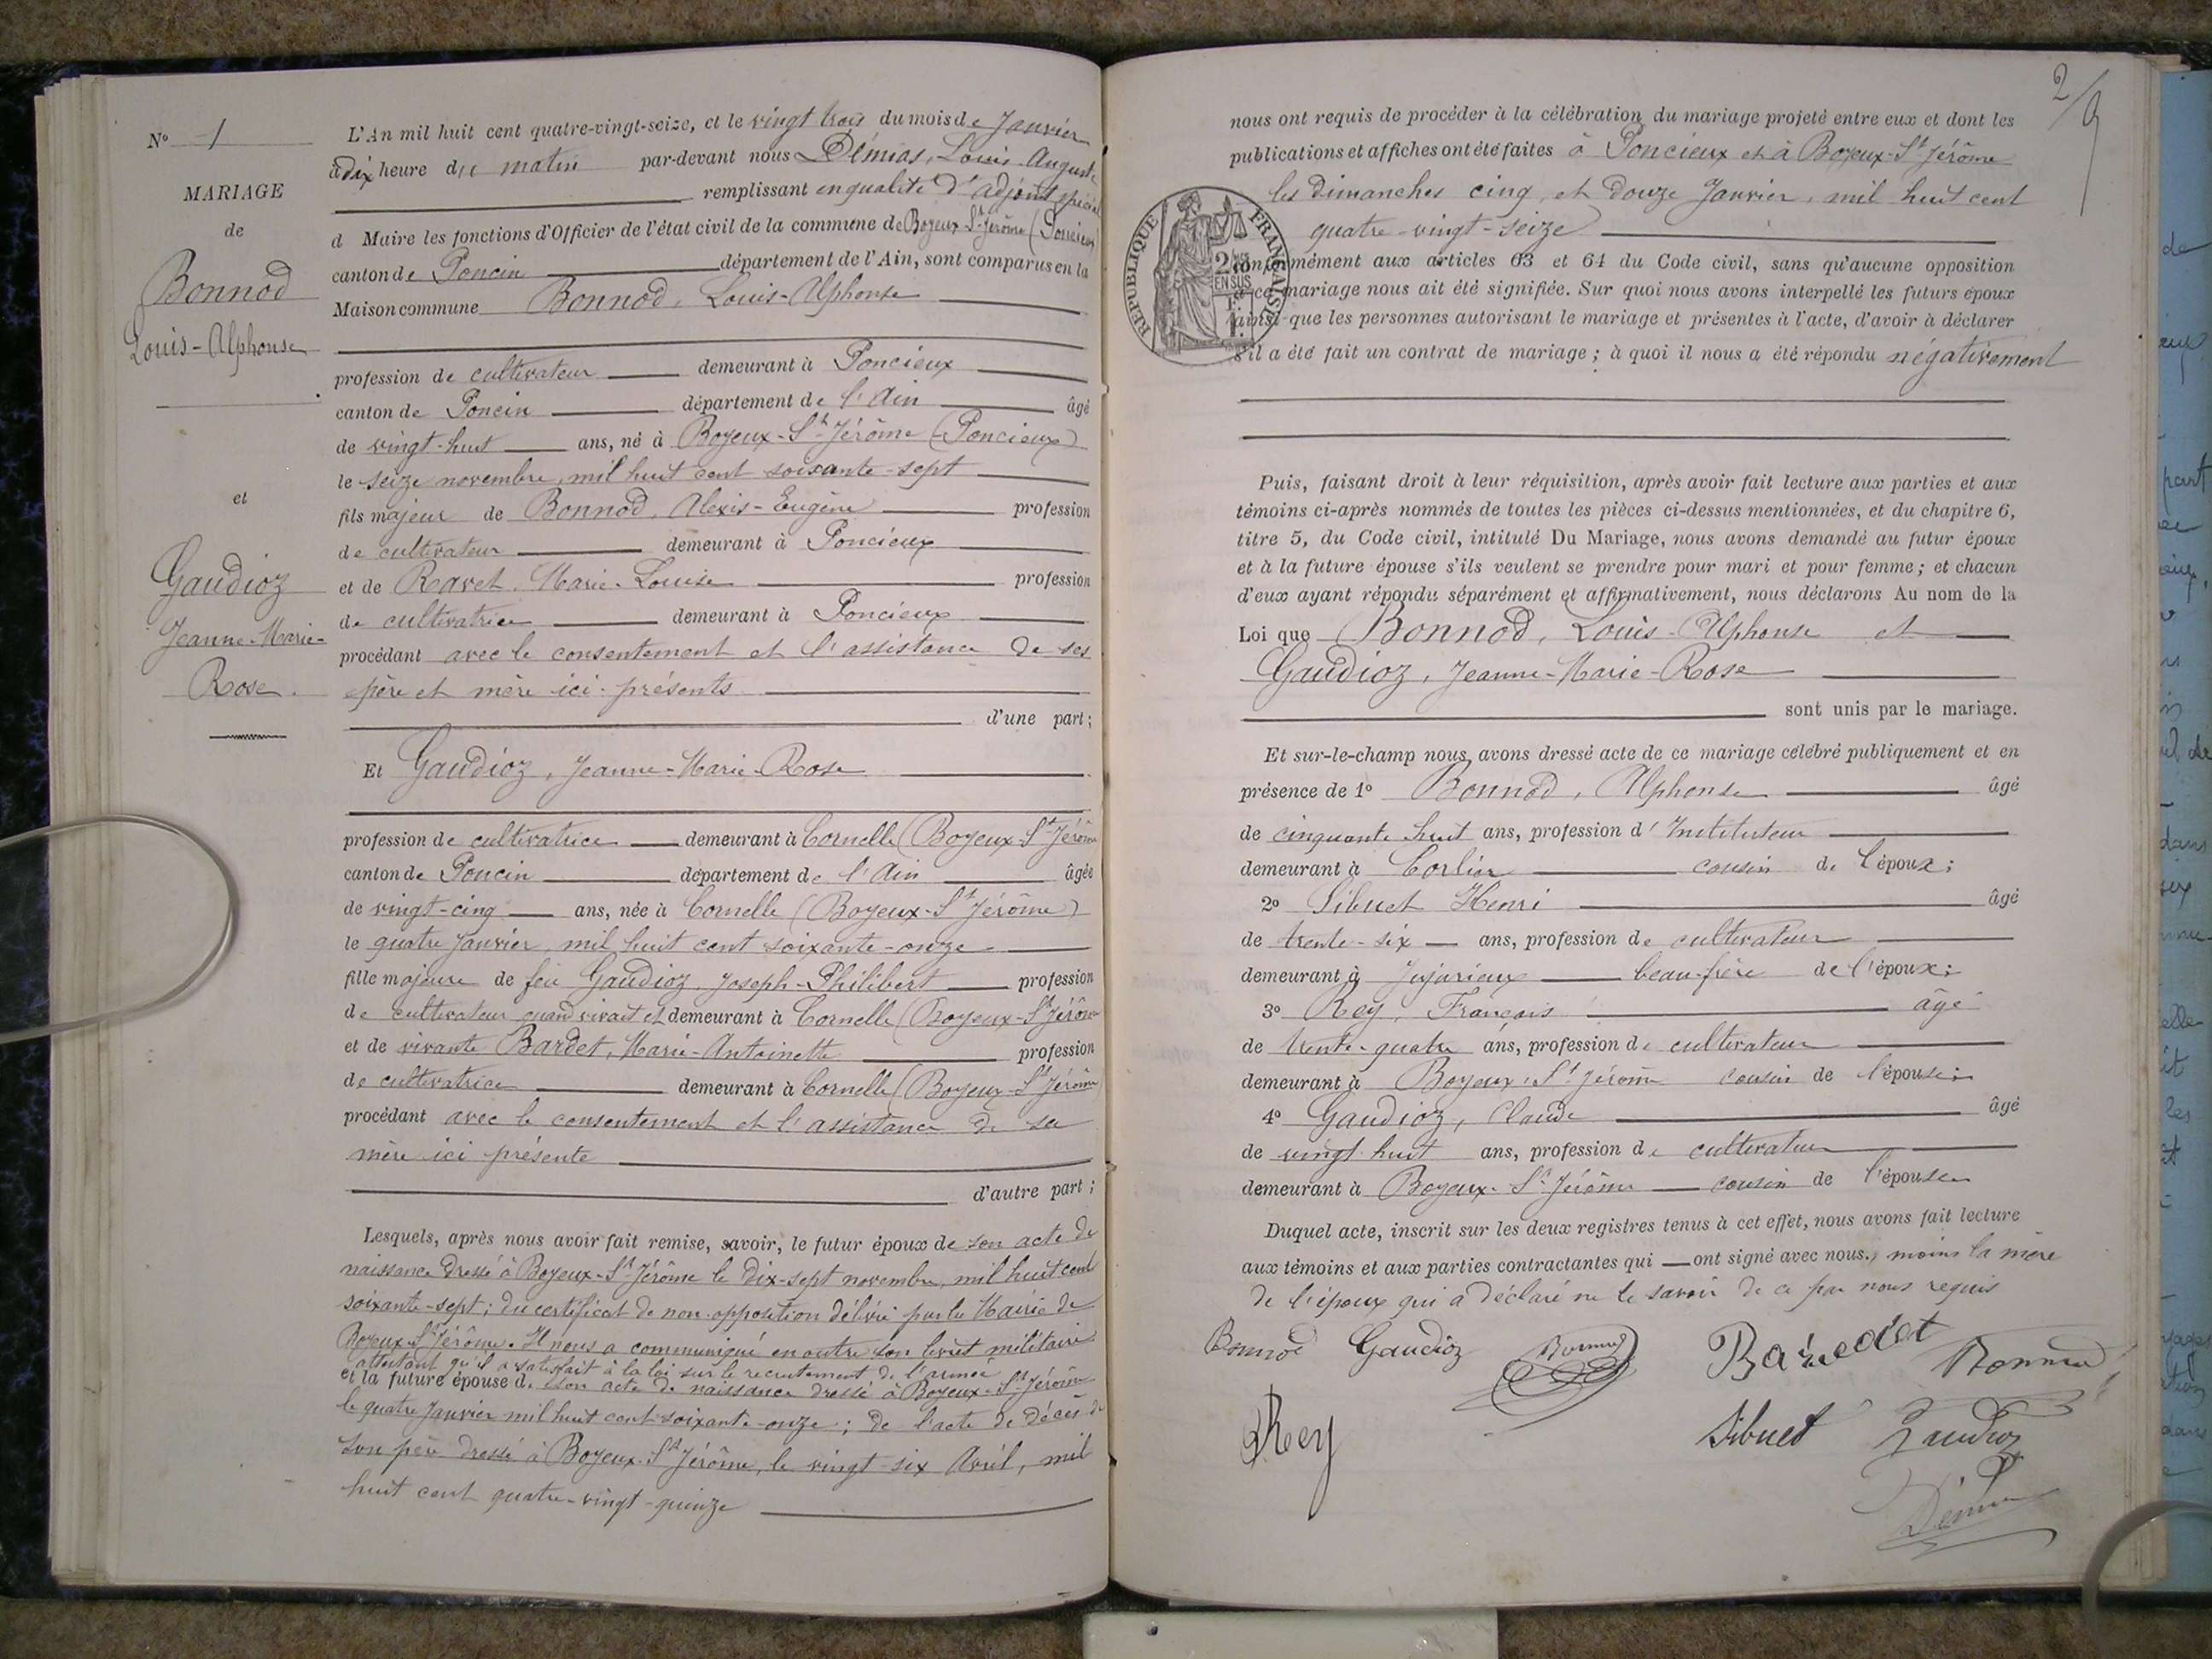 N° 1
MARIAGE
de
Bonnod
Louis-Alphonse
et
Gaudioz
Jeanne-Marie-
Rose.
L'An mil huit cent quatre-vingt-seize, et le vingt trois du mois de Janvier
à dix heure du matin par-devant nous Démias, Louis-Auguste
remplissant en qualité d'adjoint spécial
d Maire les fonctions d'Officier de l'état civil de la commune de Boyeux-St Jérôme (Poncieux)
canton de Poncin département de l'Ain, sont comparus en la
Maison commune Bonnod, Louis-Alphonse
profession de cultivateur demeurant à Poncieux
canton de Poncin département de l'Ain âgé
de vingt-huit ans, né à Boyeux-St Jérôme (Poncieux)
le seize novembre, mil huit cent soixante-sept
fils majeur de Bonnod, Alexis-Eugène profession
de cultivateur demeurant à Poncieux
et de Ravet, Marie-Louise profession
de cultivatrice demeurant à Poncieux
procédant avec le consentement et l'assistance de ses
père et mère ici présents
d'une part;
Et Gaudioz, Jeanne-Marie-Rose
profession de cultivatrice demeurant à Cornelle (Boyeux-St Jérôme
canton de Poncin département de l'Ain âgée
de vingt-cinq ans, née à Cornelle (Boyeux-St Jérôme)
le quatre Janvier mil huit cent soixante-onze
fille majeure de feu Gaudioz, Joseph-Philibert profession
de cultivateur quand vivait et demeurant à Cornelle (Boyeux-St Jérôme
et de vivante Bardet, Marie-Antoinette profession
de cultivatrice demeurant à Cornelle (Boyeux-St Jérôme)
procédant avec le consentement et l'assistance de sa
mère ici présente
d'autre part;
Lesquels, après nous avoir fait remise, savoir, le futur époux de son acte de
naissance dressé à Boyeux-St Jérôme le dix-sept novembre, mil huit cent
soixante-sept; du certificat de non-opposition délivré par la Mairie de
Boyeux-St Jérôme. Il nous a communiqué en outre son livret militaire
attestant qu'il a satisfait à la loi sur le recrutement de l'armée
et la future épouse de son acte de naissance dressé à Boyeux-St Jérôme
le quatre Janvier mil huit cent soixante-onze; de l'acte de décès de
son père dressé à Boyeux-St Jérôme, le vingt-six Avril, mil
huit cent quatre-vingt-quinze
2/9
nous ont requis de procéder à la célébration du mariage projeté entre eux et dont les
publications et affiches ont été faites à Poncieux et à Boyeux-St Jérôme
les dimanches cinq et douze Janvier, mil huit cent
quatre-vingt-seize
RÉPUBLIQUE FRANÇAISE
EN SUS
conformément aux articles 63 et 64 du Code civil, sans qu'aucune opposition
à ce mariage nous ait été signifiée. Sur quoi nous avons interpellé les futurs époux
ainsi que les personnes autorisant le mariage et présentes à l'acte, d'avoir à déclarer
s'il a été fait un contrat de mariage; à quoi il nous a été répondu négativement
Puis, faisant droit à leur réquisition, après avoir fait lecture aux parties et aux
témoins ci-après nommés de toutes les pièces ci-dessus mentionnées, et du chapitre 6,
titre 5, du Code civil, intitulé Du Mariage, nous avons demandé au futur époux
et à la future épouse s'ils veulent se prendre pour mari et pour femme; et chacun
d'eux ayant répondu séparément et affirmativement, nous déclarons Au nom de la
Loi que Bonnod, Louis-Alphonse et
Gaudioz, Jeanne-Marie-Rose
sont unis par le mariage.
Et sur-le-champ nous avons dressé acte de ce mariage célébré publiquement et en
présence de 1° Bonnod, Alphonse âgé
de cinquante huit ans, profession d'Instituteur
demeurant à Corlier cousin de l'époux;
2° Sibuet Henri âgé
de trente-six ans, profession de cultivateur
demeurant à Jujurieux beau-frère de l'époux;
3° Rey, François âgé
de trente-quatre ans, profession de cultivateur
demeurant à Boyeux-St Jérôme cousin de l'épouse;
4° Gaudioz, Claude âgé
de vingt huit ans, profession de cultivateur
demeurant à Boyeux-St Jérôme cousin de l'épouse
Duquel acte, inscrit sur les deux registres tenus à cet effet, nous avons fait lecture
aux témoins et aux parties contractantes qui ont signé avec nous, moins la mère
de l'époux qui a déclaré ne le savoir de ce par nous requis
Bonnod Gaudioz Bonnod Bardet Bonnod
Rey Sibuet Gaudioz
Démias